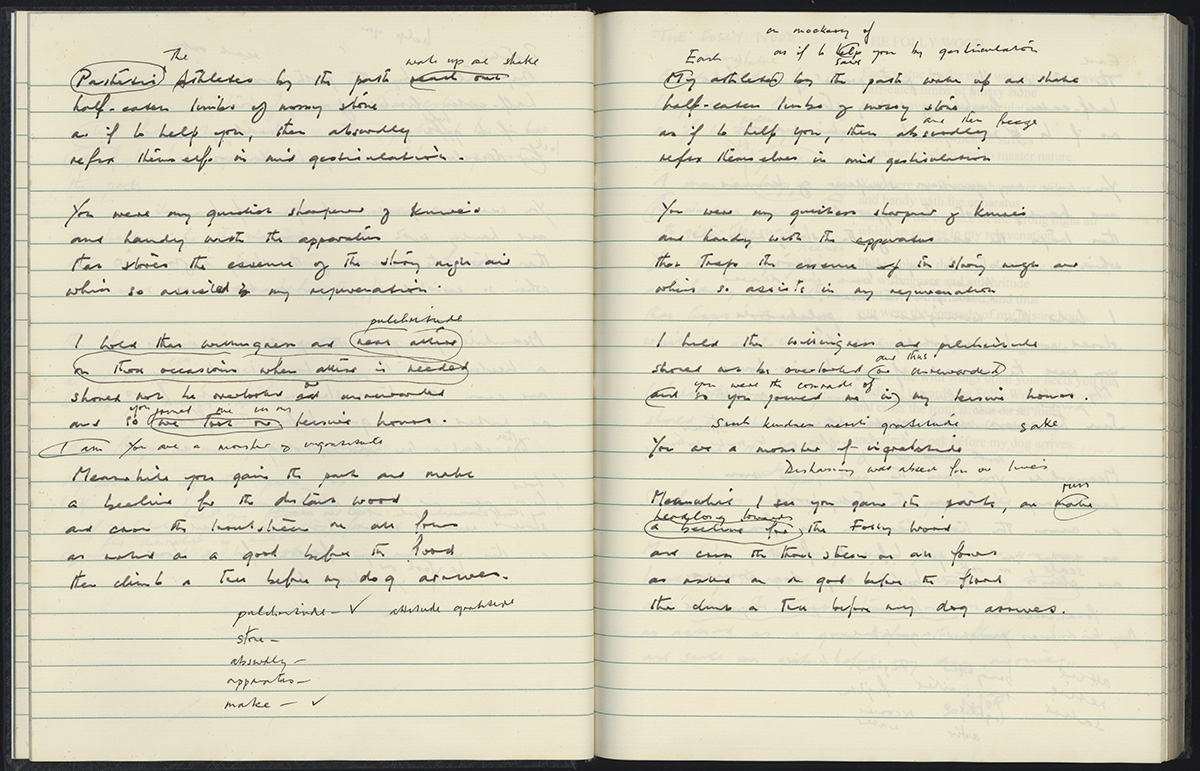 The
wake up and shake
Athletes by the path reach out
half-eaten limbs of mossy stone
as if to help you, then absurdly
refix themselves in mid gesticulation.
You were my quickest sharpener of knives
and handy with the apparatus
that stores the essence of the strong night air
which so assisted in my rejuvenation.
pulchritude
I hold that willingness and neat attire
on those occasions when attire is needed
should not be overlooked and unrewarded
you joined me in my
and so we leisure hours.
I am You are a monster of ingratitude
Meanwhile you gain the park and make
a beeline for the distant wood
and cross the trout stream on all fours
as naked as a god before the flood
then climb a tree before my dog arrives.
pulchritude – ✓ attitude gratitude
stone –
absurdly –
apparatus –
make – ✓
in mockery of
Each as if to help you by gesticulation
save
My athletes by the path wake up and shake
half-eaten limbs of mossy stone
and then freeze
as if to help you, then absurdly
refix themselves in mid gesticulation
You were my quickest sharpener of knives
and handy with the apparatus
that traps the essence of the strong night air
which so assists in my rejuvenation
I hold that willingness and pulchritude
and thus
should not be overlooked or unrewarded
you were the comrade of
and so you joined me in my leisure hours.
Such kindness merits gratitude sake
You are a monster of ingratitude
was absent from our lives
Meanwhile I see you gain the park, and make
run
headlong towards
a beeline for the Folly wood
and cross the trout stream on all fours
as naked as a god before the flood
then climb a tree before my dog arrives.